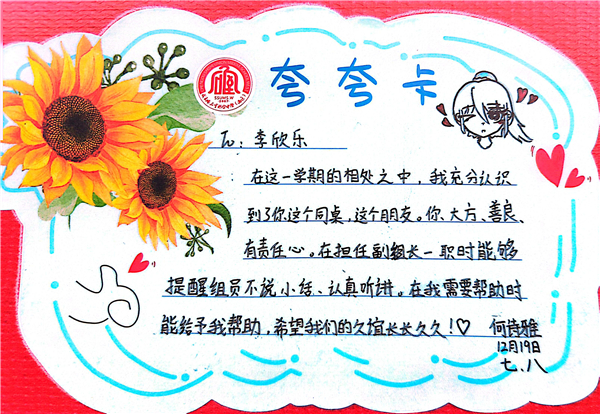 夸夸卡
To：李欣乐
在这一学期的相处之中，我充分认识
到了你这个同桌，这个朋友。你大方、善良、
有责任心。在担任副组长一职时能够
提醒组员不说小话、认真听讲。在我需要帮助时
能给予我帮助，希望我们的友谊长长久久！♡ 何诗雅
12月19日
七.八